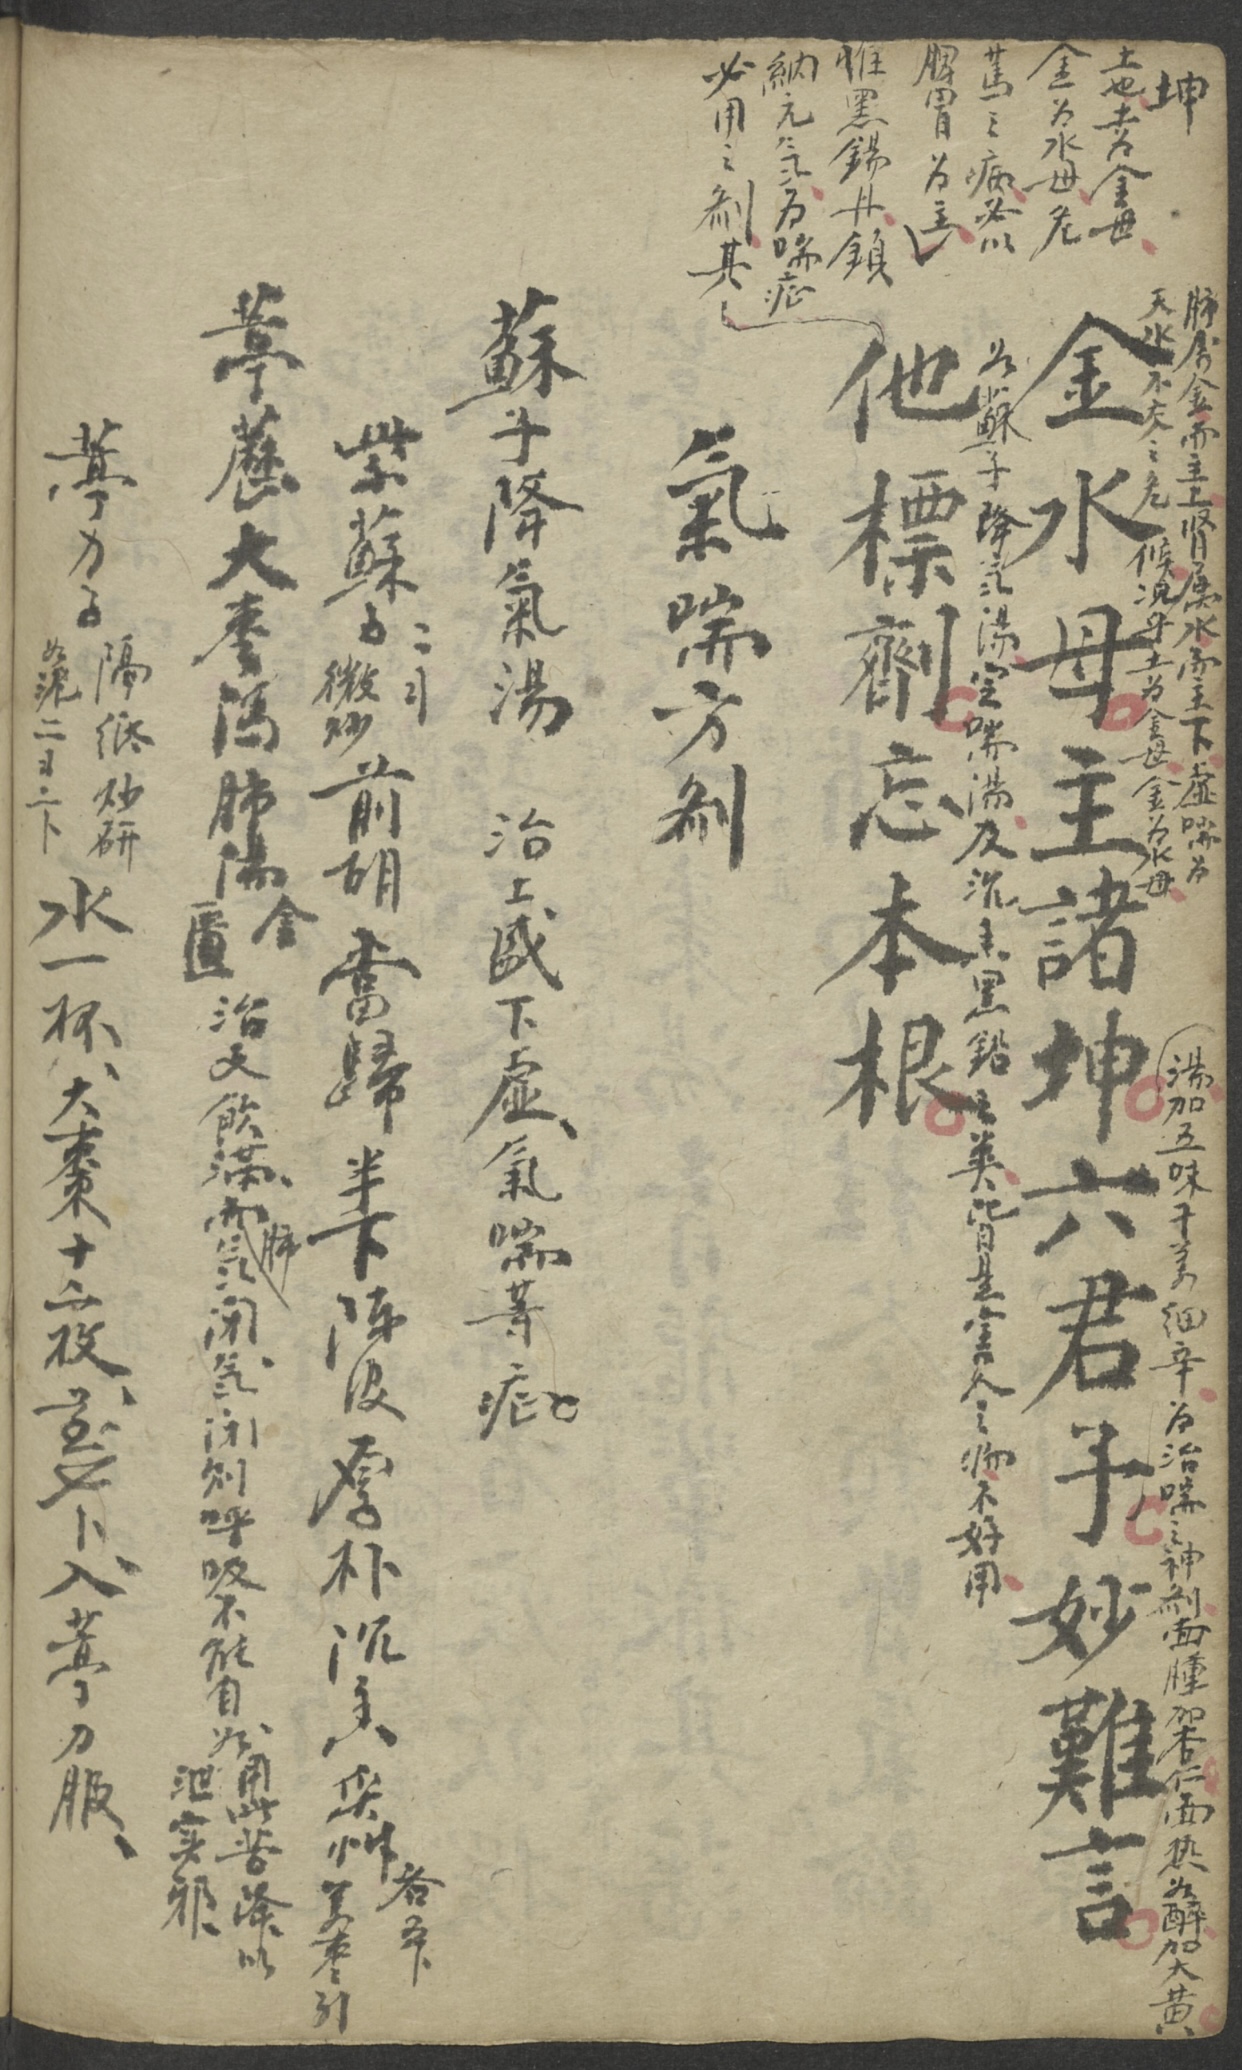 坤
土也土为金母
金为水母危
篤之病必以
脾胃为主
惟黑錫丹鎮
納元氣为喘症
必用之剂其
肺属金而主上腎属水而主下虛喘为
天水不交之危候况乎土为金母金为水母
金水母主諸坤六君子妙難言
湯加五味干姜細辛为治喘之神剂面腫加杏仁面热如醉加大黄
如蘇子降氣湯定喘湯及沉香黑鉛之类皆是害人之物不好用
他標劑忘本根
氣喘方剂
蘇子降氣湯 治上盛下虛氣喘等症
紫蘇子二刄微炒前胡當歸半下陳皮厚朴沉香炙艸各五卜姜枣引
葶藶大枣瀉肺湯金匱治支飲滿而肺氣闭氣闭則呼吸不能自如用此苦降以泄实邪
葶力子隔紙炒研如泥二刄二卜水一杯大棗十二枚至七卜入葶力服